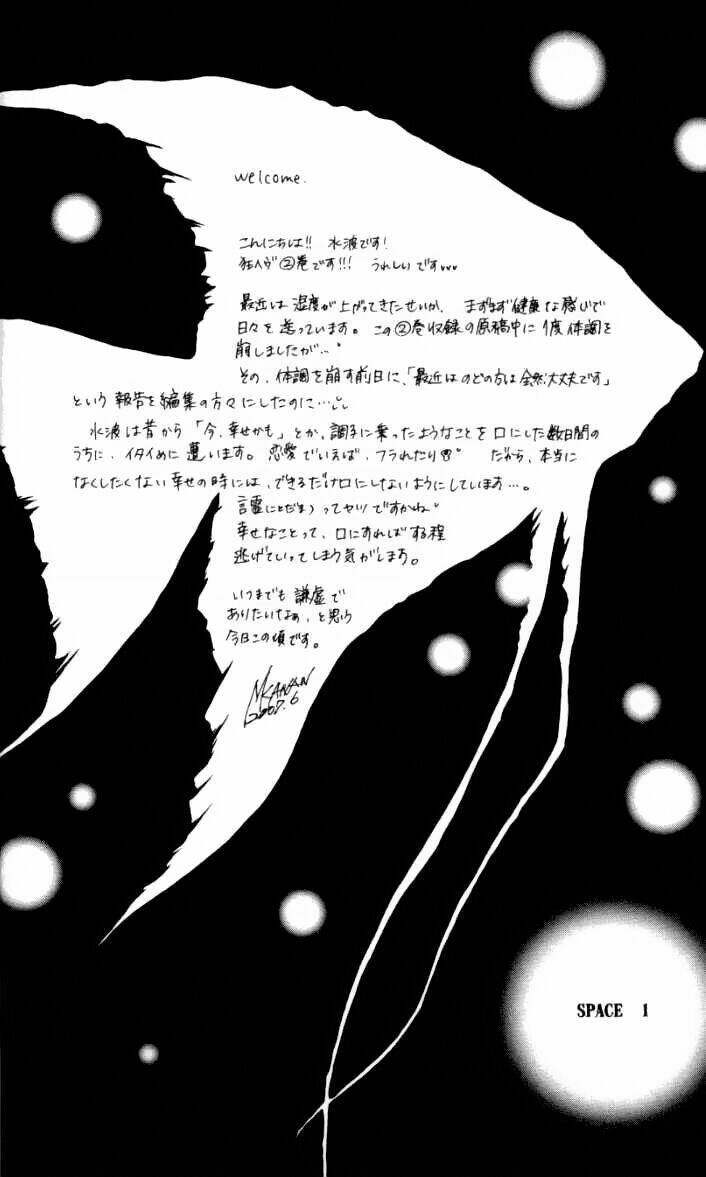 welcome.
こんにちは!! 水波です!
狂ヘヴ②巻です!!! うれしいです
最近は湿度が上がってきたせいか、まずまず健康な喉で
日々を送っています。この②巻収録の原稿中に1度体調を
崩しましたが…。
その、体調を崩す前日に、「最近はのどの方は全然大丈夫です」
という報告を編集の方々にしたのに…
水波は昔から「今、幸せかも」とか、調子に乗ったようなことを口にした数日間の
うちに、イタイめに遭います。恋愛でいえば、フラれたり だから、本当に
なくしたくない幸せの時には、できるだけ口にしないようにしています…。
言霊(ことだま)ってヤツですかね。
幸せなことって、口にすればする程
逃げていってしまう気がします。
いつまでも謙虚で
ありたいなぁ、と思う
今日この頃です。
2007.6
SPACE 1